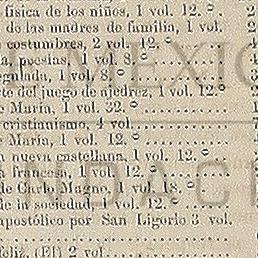 física de los niños, 1 vol. 12.º
de las madres de familia, 1 vol.
costumbres, 2 vol. 12.º
poesías, 1 vol. 8.º
1 vol. 8.º
del juego de ajedrez, 1 vol. 12.º
María, 1 vol. 32.º
cristianismo, 4 vol.
María, 1 vol. 12.º
nueva castellana, 1 vol. 12.º
francesa, 1 vol. 12.º
de Carlo Magno, 1 vol. 18.º
de la sociedad, 1 vol. 12.º
apostólico por San Ligorio 3 vol.
(El) 2 vol.